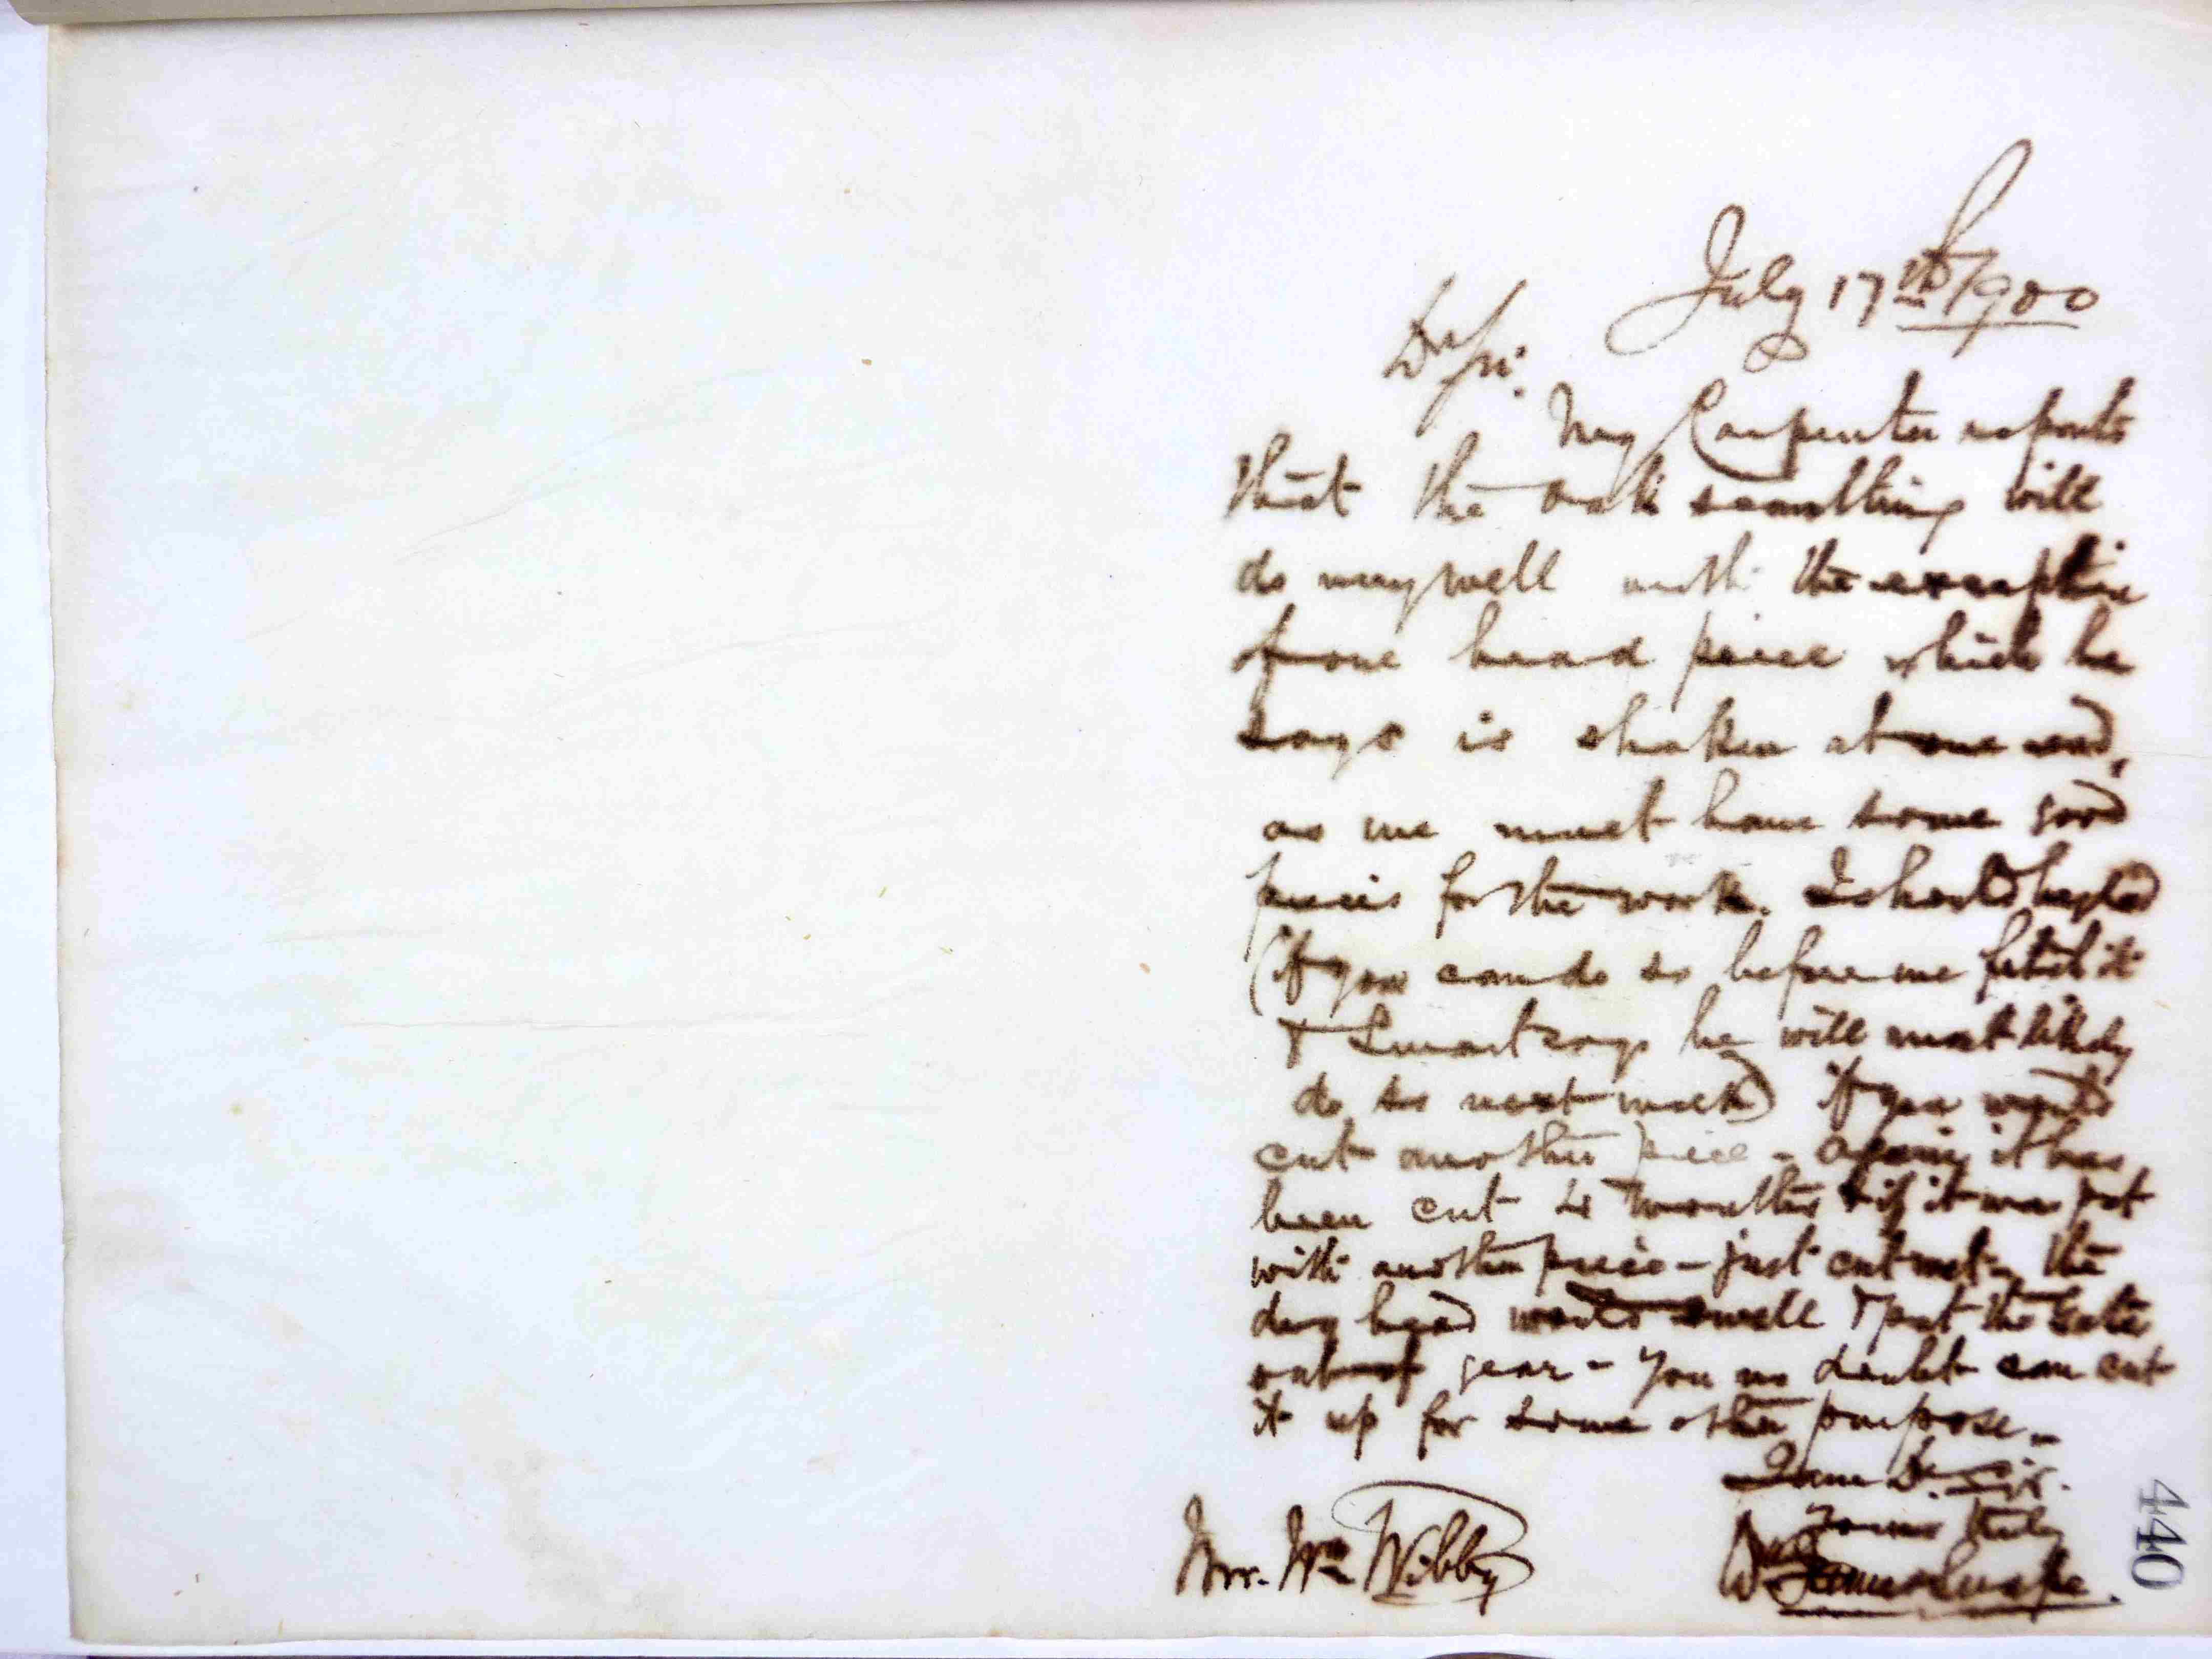 July 17th 1900
Dr Sir.
My Carpenter reports
that the oak scantling will
do very well with the exception
of one head piece which he
says is shaken at one end,
as we must have some good
pieces for the work. I should be glad
(if you can do so before we fetch it
& Smart says he will most likely
do so next week) if you would
cut another piece - again it has
been cut 4 months & if it was put
with another piece - just cut wet - the
dry head would swell & put the Gate
out of gear - You no doubt can cut
it up for some other purpose -
I am Dr Sir.
Yours truly
Mr. Wm Wibby
440